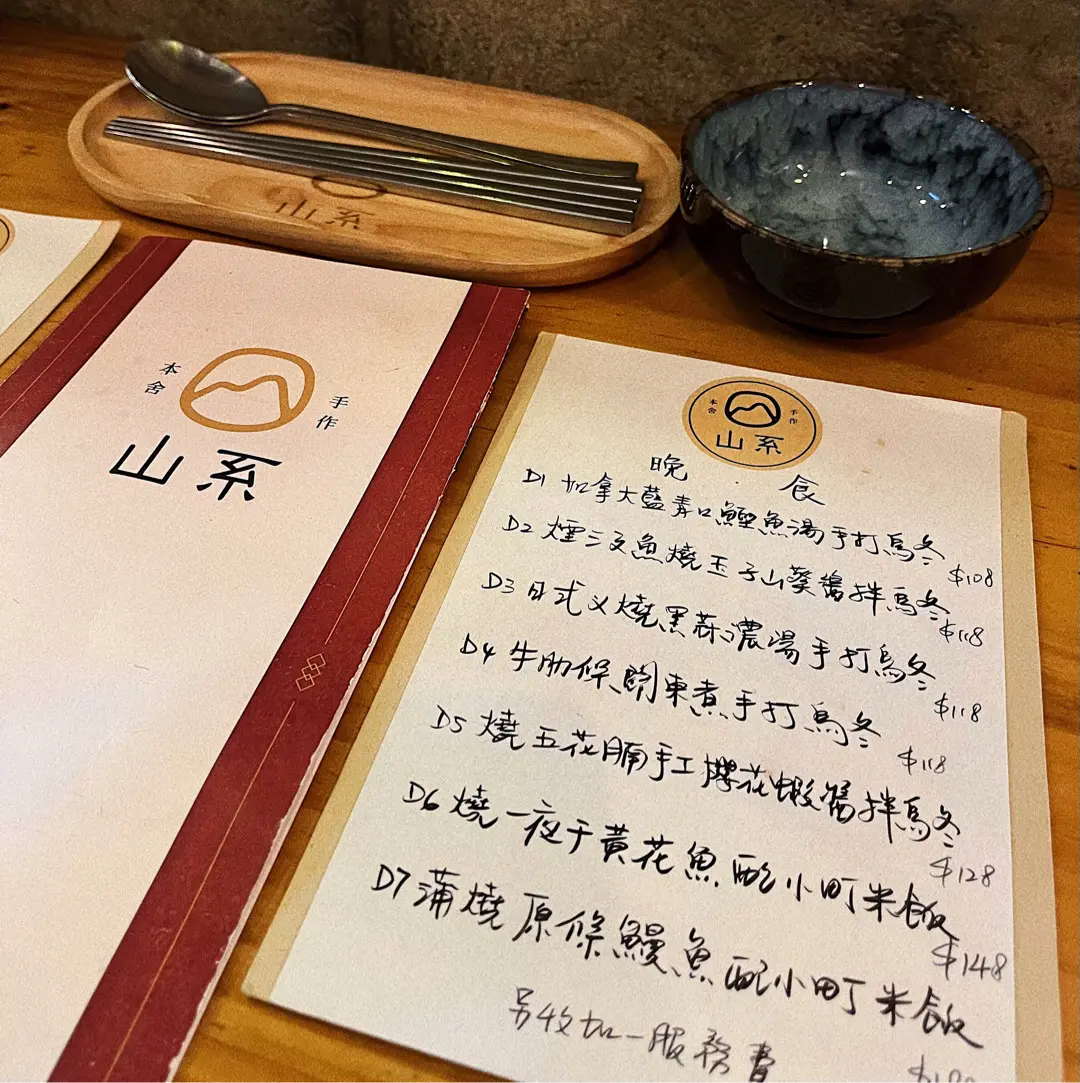 山系
本舍
手作
山系
本舍
手作
山系
晚.食
D1 加拿大藍青口鰹魚湯手打烏冬 $108
D2 煙三文魚燒玉子山葵醬拌烏冬 $118
D3 日式叉燒黑蒜濃湯手打烏冬 $118
D4 牛肋條關東煮手打烏冬 $118
D5 燒五花腩手工櫻花蝦醬拌烏冬 $128
D6 燒一夜干黃花魚配小町米飯 $148
D7 蒲燒原條鰻魚配小町米飯
另收加一服務費